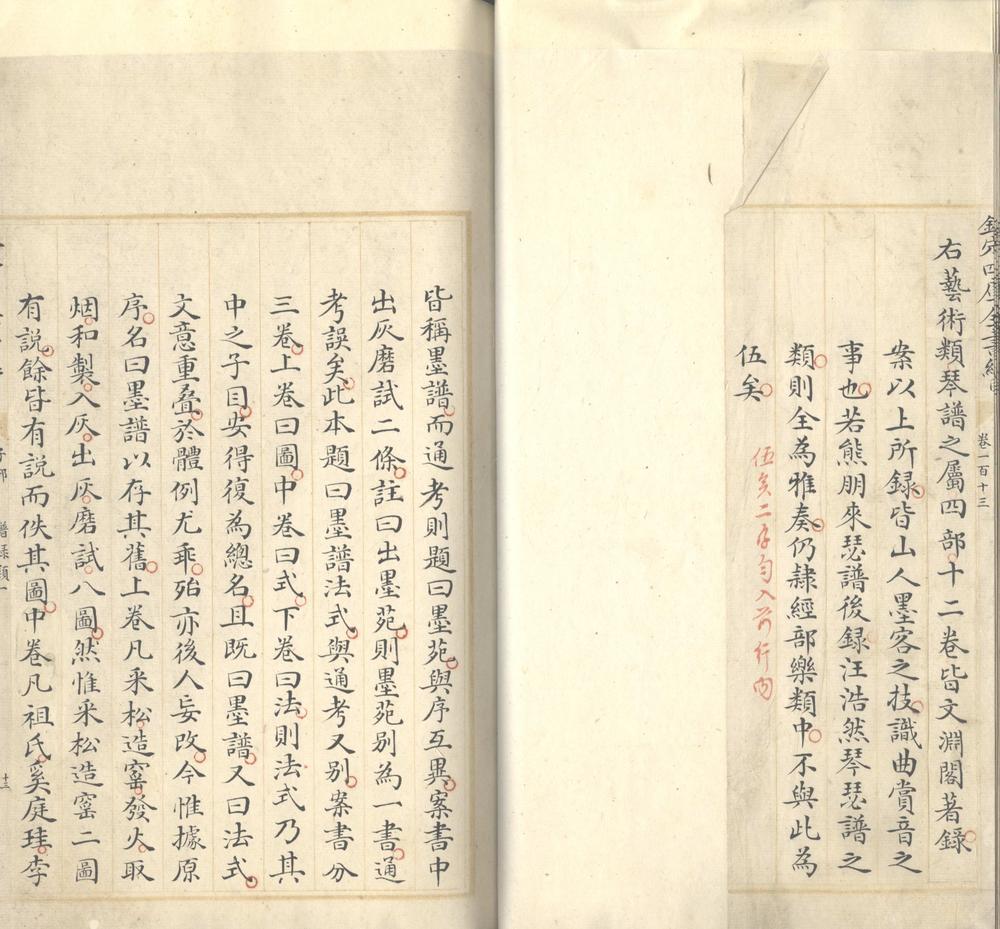 欽定四庫全書總目
卷一百十三
右藝術類琴譜之屬四部十二卷皆文淵閣著錄
案以上所録皆山人墨客之技識曲賞音之
事也若熊朋來瑟譜後録汪浩然琴瑟譜之
類則全為雅奏仍隸經部樂類中不與此為
伍矣
伍矣二字勻入前行內
皆稱墨譜而通考則題曰墨苑與序互異案書中
出灰磨試二條註曰出墨苑則墨苑別為一書通
考誤矣此本題曰墨譜法式與通考又別案書分
三卷上卷曰圖中卷曰式下卷曰法則法式乃其
中之子目安得復為總名且既曰墨譜又曰法式
文意重叠於體例尤乖殆亦後人妄改今惟據原
序名曰墨譜以存其舊上卷凡采松造窰發火取
烟和製入灰出灰磨試八圖然惟采松造窰二圖
有説餘皆有説而佚其圖中卷凡祖氏奚庭珪李
譜錄類一